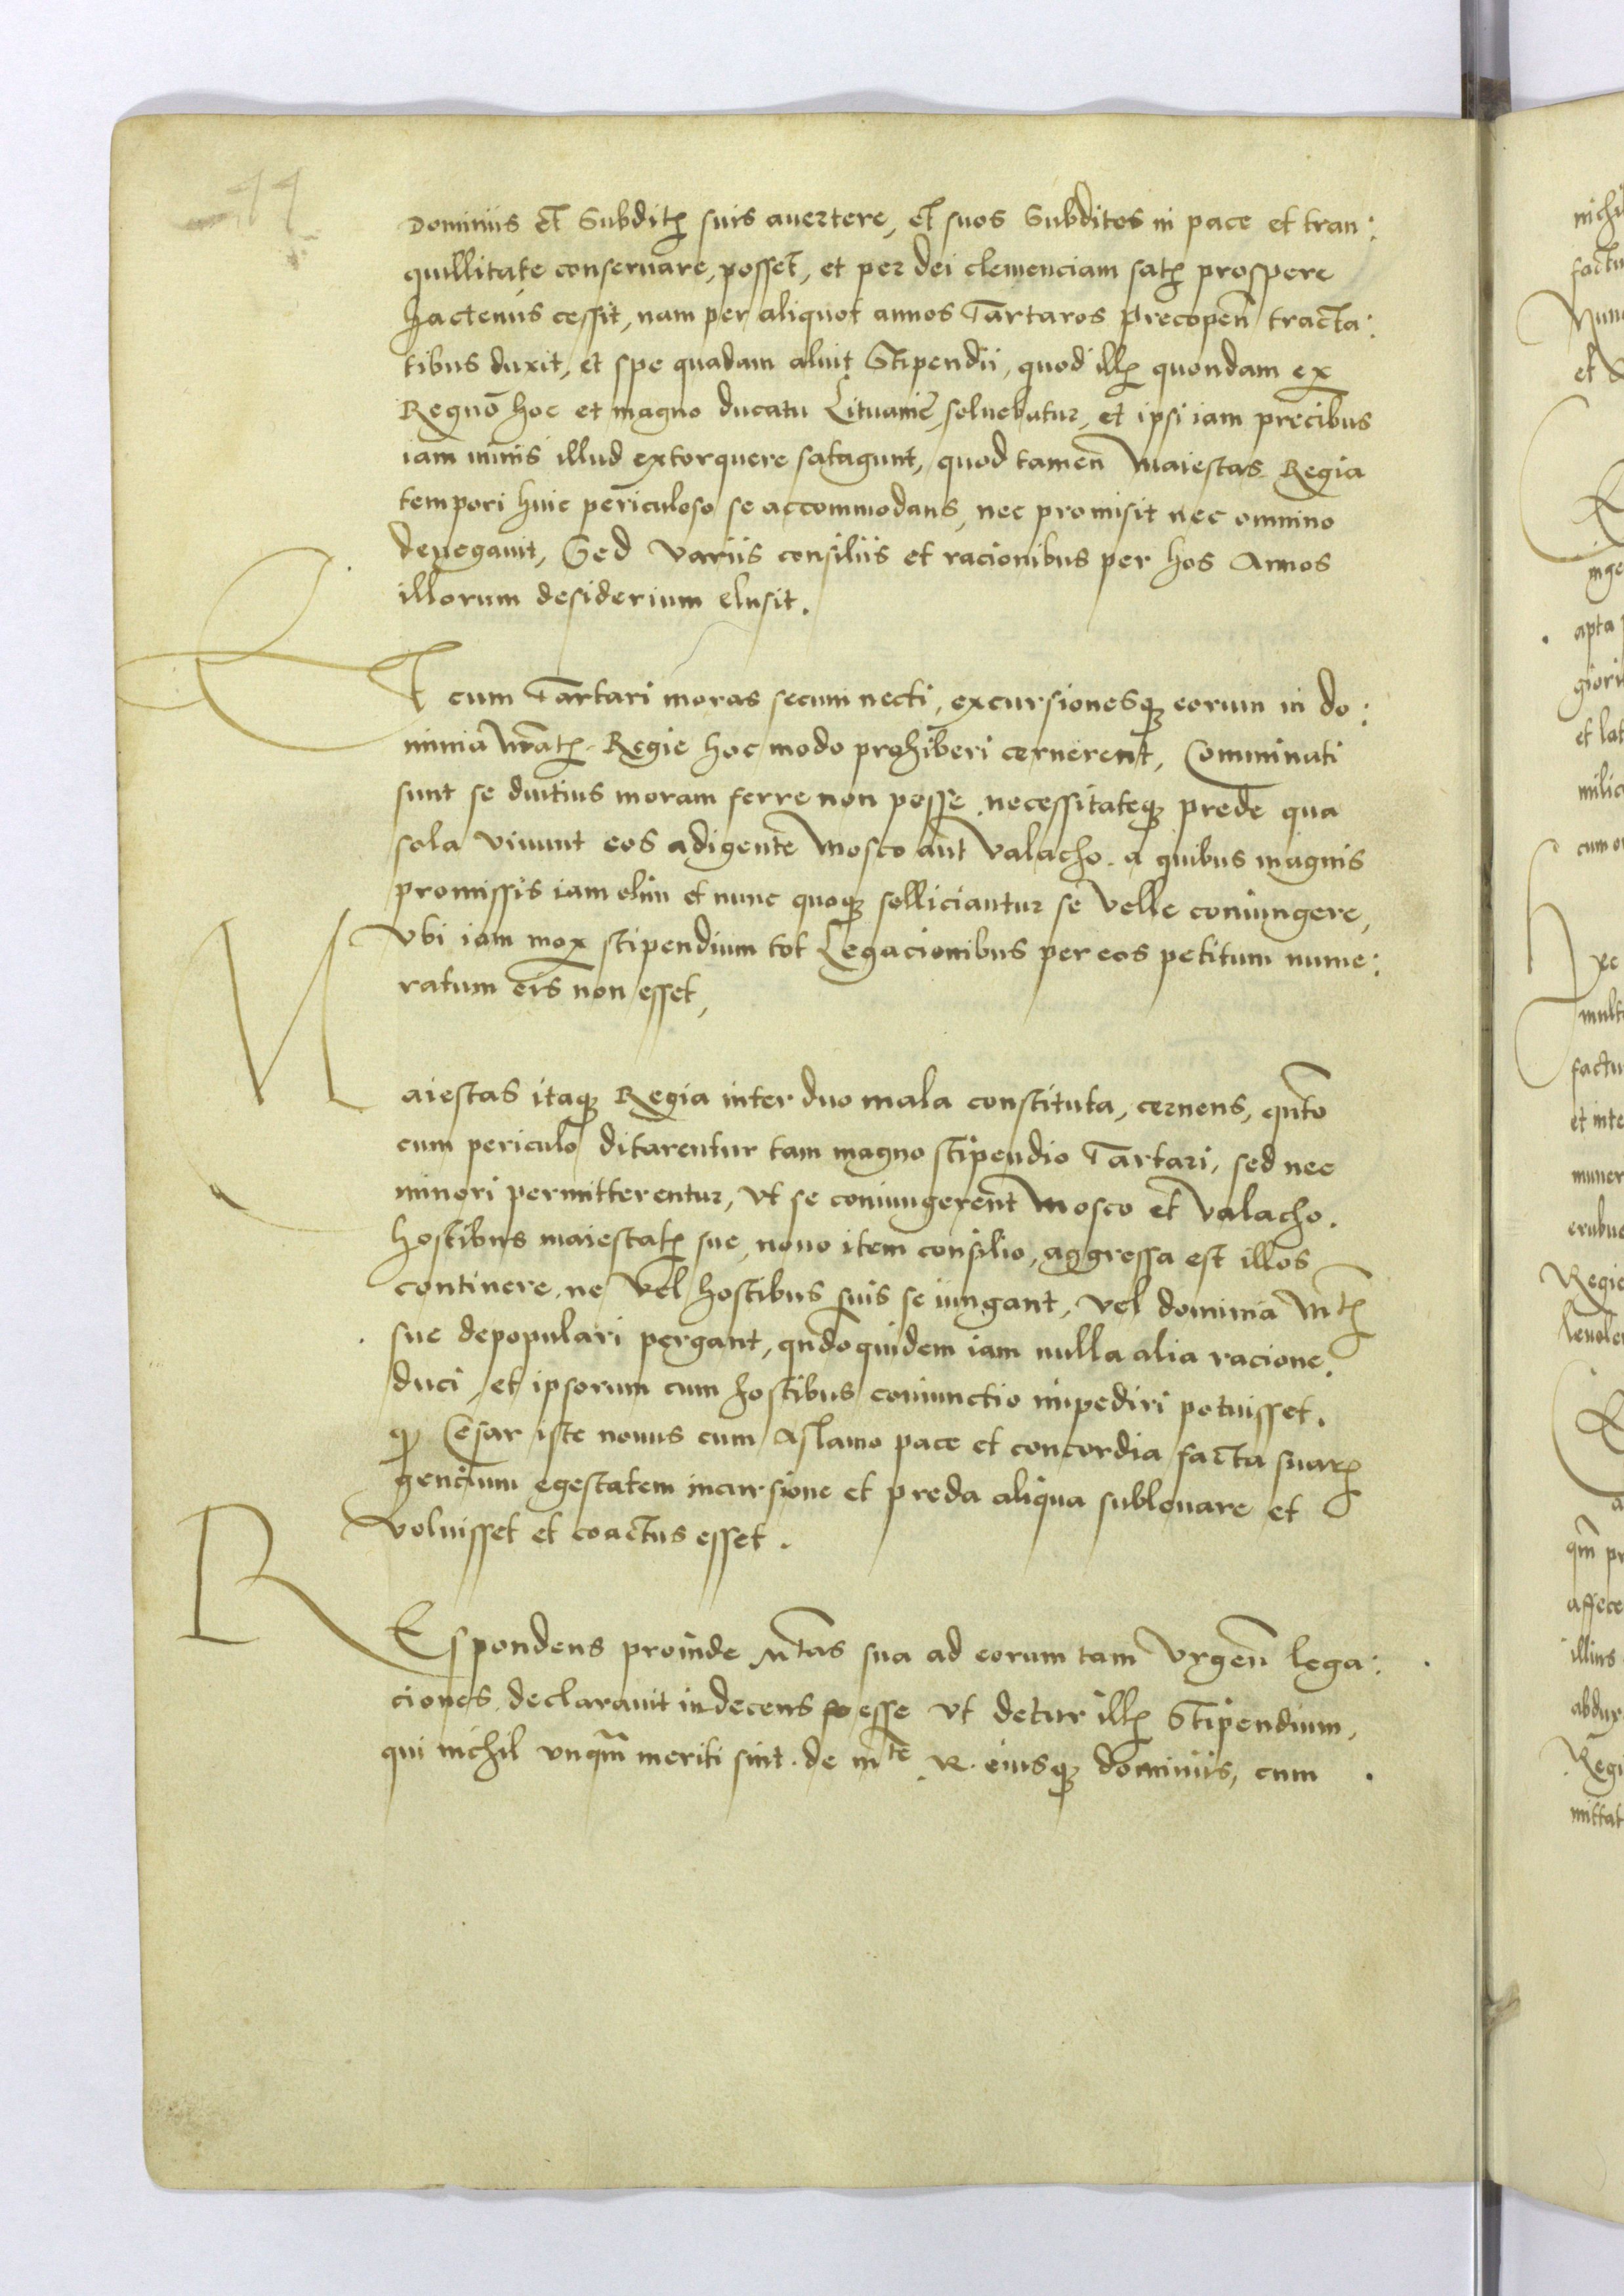 44
Dominiis et Subditꝭ suis auertere, et suos Subditos in pace et tran:
quillitate conseruare, posset, et per dei clemenciam satꝭ prospere
hactenus cessit, nam per aliquot annos Tartaros precopen̄ tracta:
tibus duxit, et spe quadam aluit Stipendii, quod illꝭ quondam ex
Regno hoc et magno ducatu Lituanie, soluebatur, et ipsi iam precibus
iam minis illud extorquere satagunt, quod tamen Maiestas Regia
tempori huic periculoso se accommodans, nec promisit nec omnino
denegauit, Sed variis consiliis et racionibus per hos Annos
illorum desiderium elusit.
ET cum Tartari moras secum necti, excursionesqꝫ eorum in do:
minia Mtatꝭ Regie hoc modo prohiberi cernerent, Comminati
sunt se diutius moram ferre non posse, necessitateqꝫ prede qua
sola viuunt eos adigente Mosco aut Valacho. a quibus magnis
promissis iam olim et nunc quoqꝫ solliciantur se velle coniungere,
Vbi iam mox stipendium tot Legacionibus per eos petitum nume:
ratum eis non esset,
Maiestas itaqꝫ Regia inter duo mala constituta, cernens, qnto
cum periculo ditarentur tam magno stipendio Tartari, sed nec
minori permitterentur, vt se coniungerent Mosco et Valacho.
hostibus maiestatꝭ sue, nouo item consilio, aggressa est illos
continere, ne vel hostibus suis se iungant, vel dominia Mtꝭ
sue depopulari pergant, qndoquidem iam nulla alia racione
duci, et ipsorum cum hostibus coniunctio impediri potuisset.
qꝫ Cesar iste nouus cum Aslamo pace et concordia facta suarꝭ
gencium egestatem incursione et preda aliqua subleuare et
voluisset et coactus esset.
REspondens proinde Mtas sua ad eorum tam vrgen̄ lega:
ciones, declarauit indecens esse vt detur illꝭ Stipendium,
qui nichil vnqm̄ meriti sint. de mte R. eiusqꝫ dominiis, cum